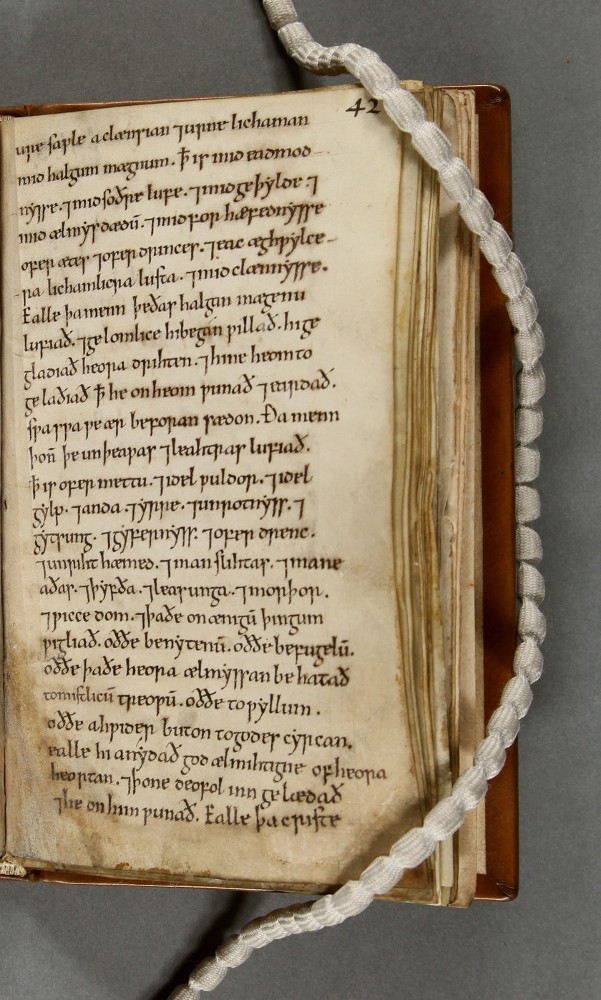 42
ure saƿle aclænsian ⁊ urne lichaman
mid halgum mægnum. ꝥ is mid eadmod
nysse. ⁊ mid soðre lufe. ⁊ mid geþylde. ⁊
mid ælmysdædū. ⁊ mid forhæfednysse
ofer ætes ⁊ ofer drinces. ⁊ eac æghƿylce
ra lichamlicra lusta. ⁊ mid clænnysse.
Ealle þa menn þe ðas halgan mægenu
lufiað. ⁊ gelomlice hi began ƿillað. hi ge
gladiað heora drihten. ⁊ hine heom to
gelaðiað ꝥ he on heom ƿunað ⁊ eardað.
sƿa sƿa ƿe ær beforan sædon. Ða menn
þoñ þe unþeaƿas ⁊ leahtras lufiað.
ꝥ is ofer mettu. ⁊ idel ƿuldor. ⁊ idel
gylp. ⁊ anda. ⁊ yrre. ⁊ unrotnyss. ⁊
gytsung. ⁊ gyfernyss. ⁊ ofer drenc.
⁊ unriht hæmed. ⁊ man slihtas. ⁊ mane
aðas. ⁊ þyfða. ⁊ leasunga. ⁊ morþor.
⁊ ƿicce dom. ⁊ þa ðe on ænigū þingum
ƿigliað. oððe be nytenū. oððe be fugelū.
oððe þa ðe heora ælmyssan behatað
to treoƿū. oððe to ƿyllum.
oððe ahƿider buton to godes cyrcan.
ealle hi anydað god ælmihtigne of heora
heortan. ⁊ þone deofol inn gelædað
⁊ he on him ƿunað. Ealle þa cristę